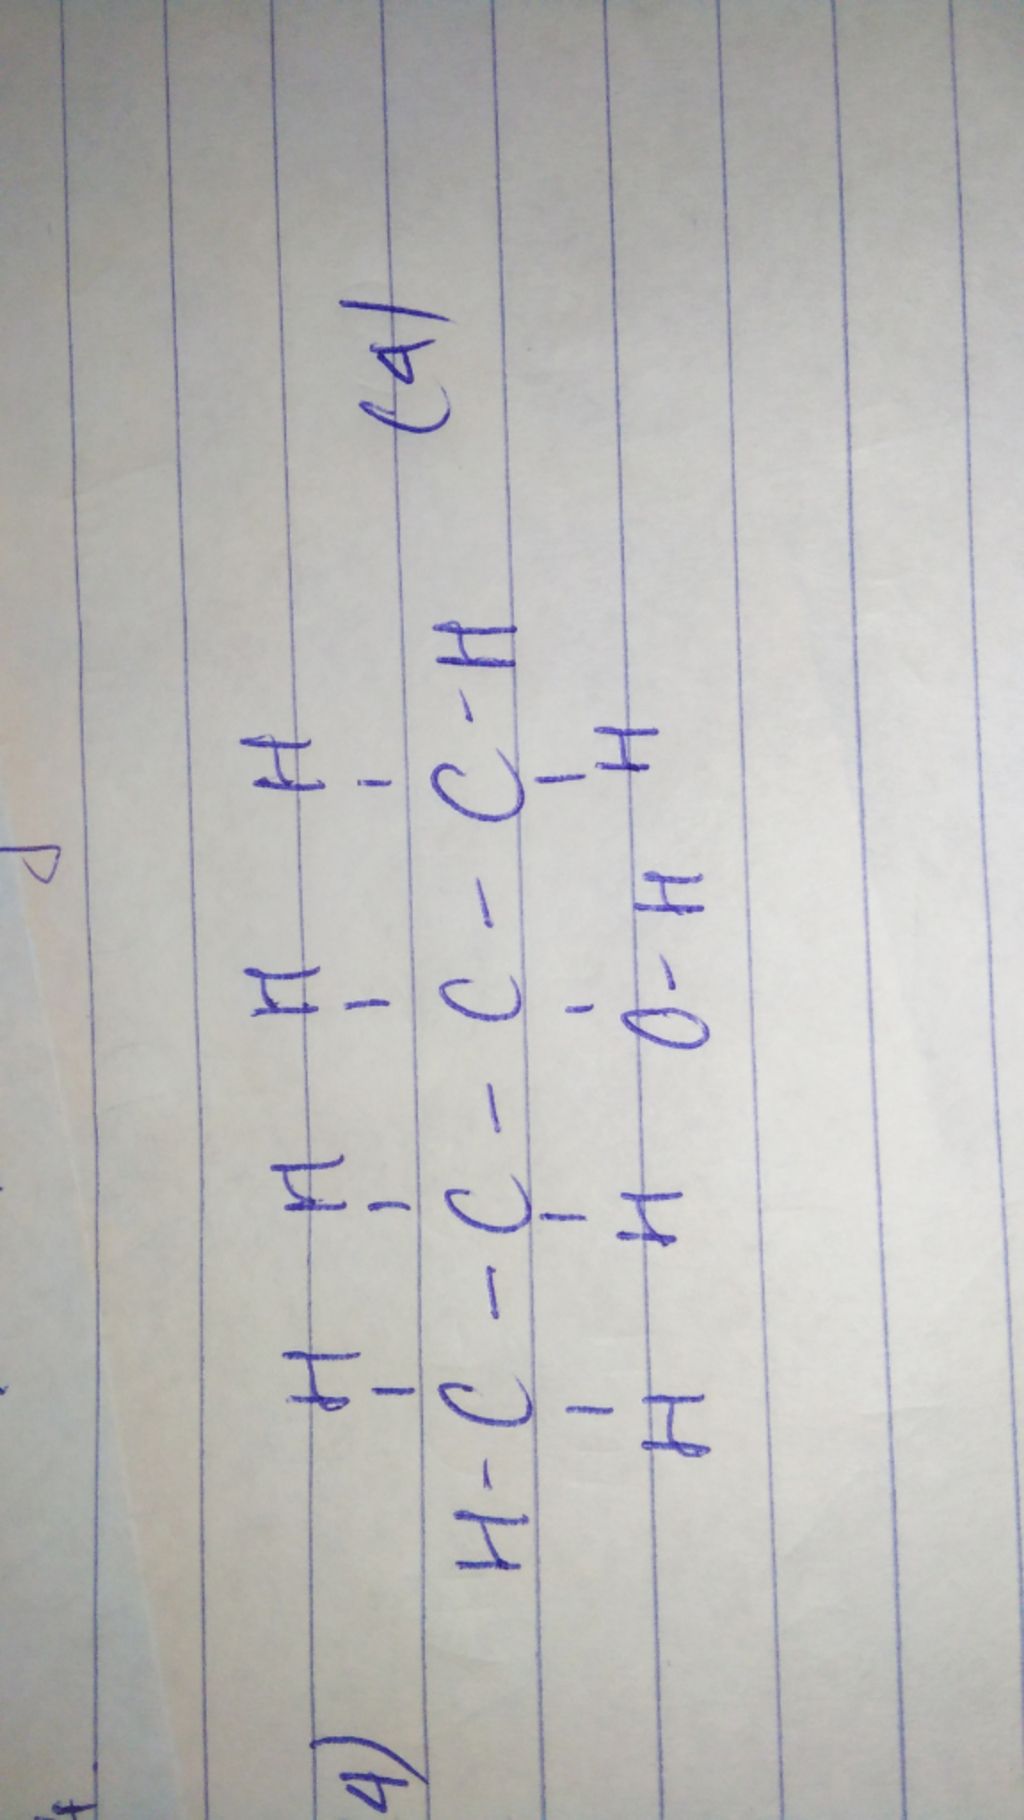 4) H H H H (4)
| | | |
H - C - C - C - C - H
| | | |
H H O - H H